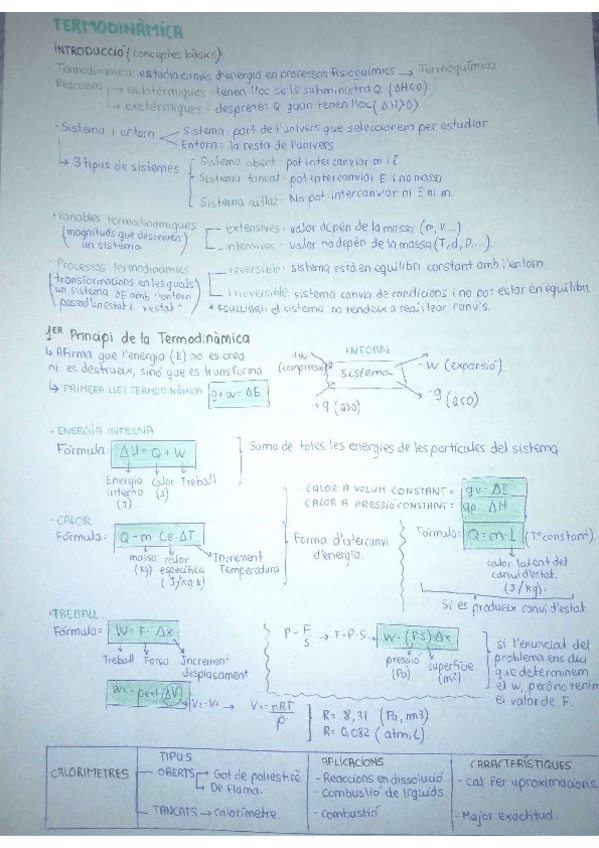 TERMODINÀMICA
INTRODUCCIÓ (conceptes bàsics)
Termodinàmica: estudia canvis d'energia en processos fisicoquímics → Termoquímica
Reaccions → endotèrmiques: tenen lloc se'ls subministra Q (ΔH<0)
→ exotèrmiques: desprenen Q quan tenen lloc (ΔH>0)
· Sistema i entorn Sistema: part de l'univers que seleccionem per estudiar
Entorn: la resta de l'univers
↳ 3 tipus de sistemes Sistema obert: pot intercanviar m i E
Sistema tancat: pot intercanviar E i no massa
Sistema aïllat: No pot intercanviar ni E ni m.
· Variables termodinàmiques extensives: valor depèn de la massa (m, V...)
(magnituds que descriuen un sistema) intensives: valor no depèn de la massa (T, d, P...).
· Processos termodinàmics reversible: sistema està en equilibri constant amb l'entorn.
(transformacions en les quals
un sistema ΔE amb l'entorn irreversible: sistema canvia de condicions i no pot estar en equilibri.
* EQUILIBRI: el sistema no tendeix a realitzar canvis.
1ER Principi de la Termodinàmica
↳ Afirma que l'energia (E) no es crea
ni es destrueix, sinó que es transforma
↳ PRIMERA LLEI TERMODINÀMICA q+w=ΔE
ENTORN
+w (compressió)
sistema
-w (expansió).
+q (q>0)
-q (q<0)
· ENERGIA INTERNA
Fórmula: ΔU = Q + W Suma de totes les energies de les partícules del sistema
Energia interna (J) Calor (J) Treball
· CALOR A VOLUM CONSTANT = qv = ΔE
CALOR A PRESSIÓ CONSTANT = qp = ΔH
· CALOR
Fórmula = Q = m · Ce · ΔT
massa (kg) calor específica (J/kg·k) Increment Temperatura
Forma d'intercanvi d'energia.
Fórmula = Q = m·L (Tª constant).
calor latent del canvi d'estat. (J/kg).
Si es produeix canvi d'estat
· TREBALL
Fórmula = W = F · Δx
Treball Força Increment desplaçament
P = F/S → F = P·S → W = (P·S) Δx
pressió (Pa) superfície (m²)
si l'enunciat del
problema ens diu
que determinem
el w, però no tenim
el valor de F.
pext (ΔV)
V = nRT/P
R = 8,31 (Pa, m3)
R = 0,082 (atm, L)
CALORIMETRES
TIPUS
OBERTS → Got de poliestirè
→ De flama.
TANCATS → Calorímetre
APLICACIONS
- Reaccions en dissolució
- Combustió de líquids.
- Combustió
CARACTERÍSTIQUES
- Cal fer aproximacions
- Major exactitud.